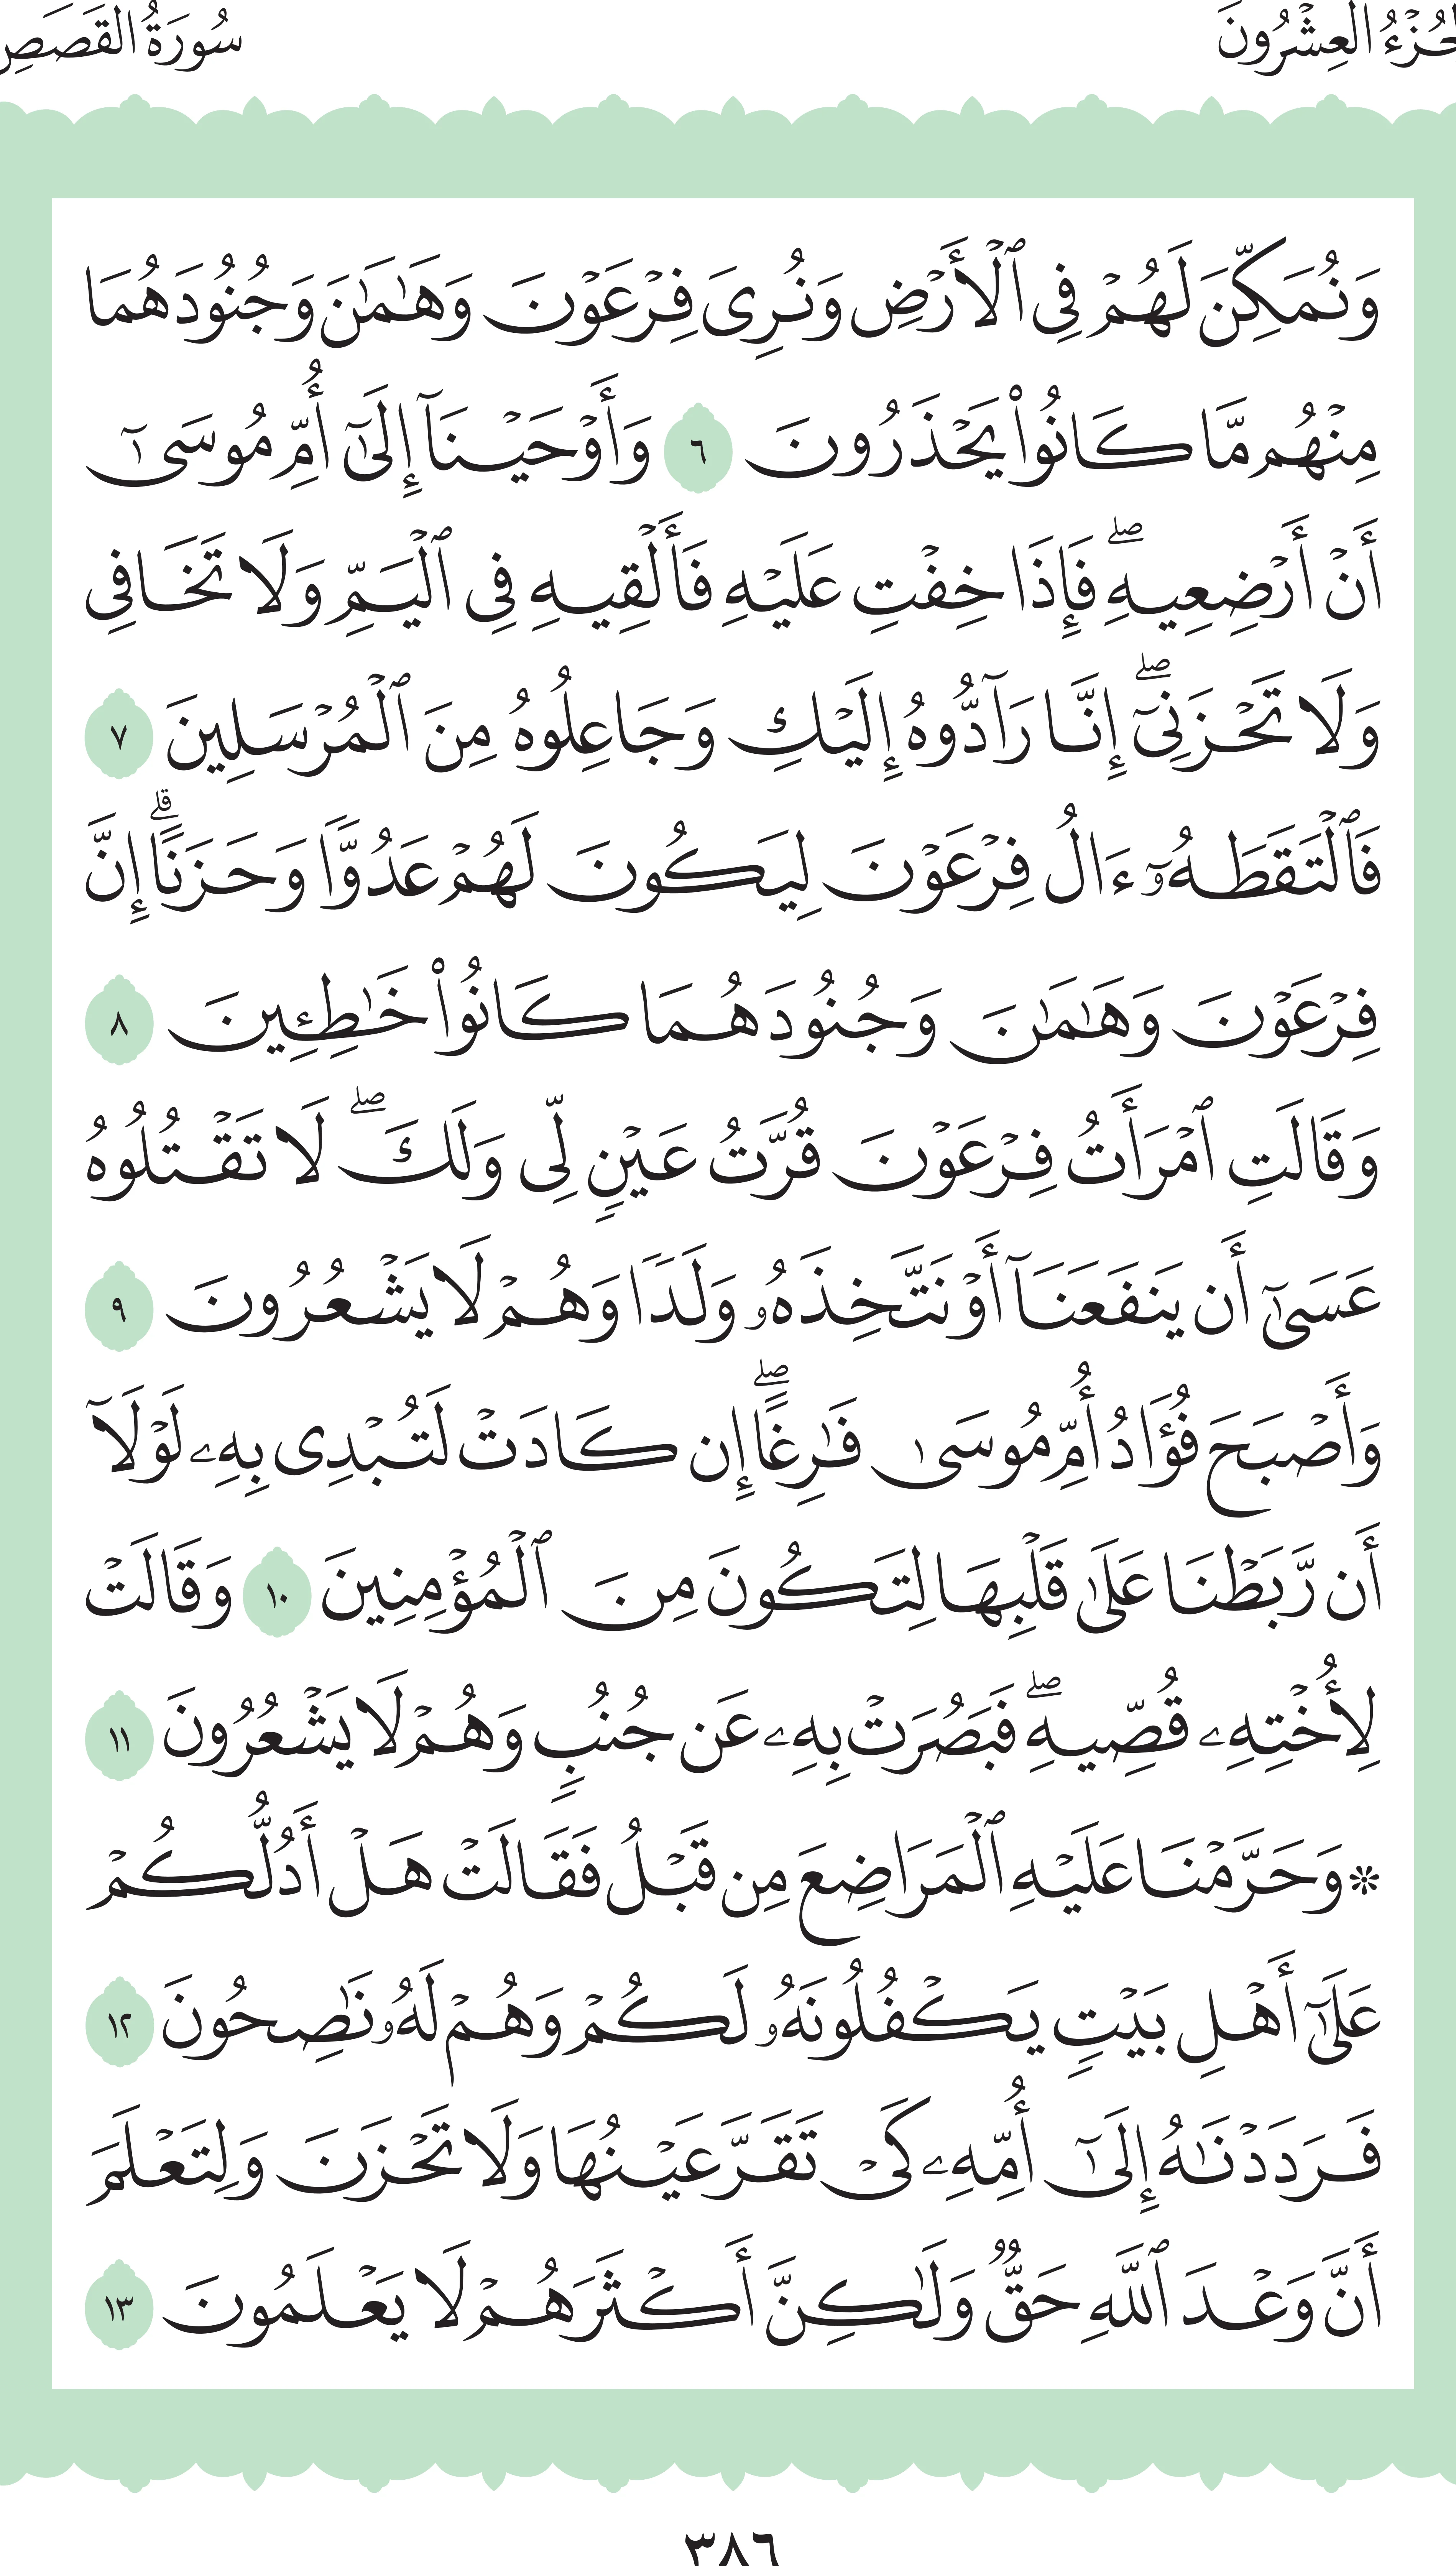 الجُزْءُ العِشْرُونَ سُورَةُ القَصَصِ
وَنُمَكِّنَ لَهُمْ فِى ٱلْأَرْضِ وَنُرِىَ فِرْعَوْنَ وَهَـٰمَـٰنَ وَجُنُودَهُمَا
مِنْهُم مَّا كَانُوا۟ يَحْذَرُونَ ٦ وَأَوْحَيْنَآ إِلَىٰٓ أُمِّ مُوسَىٰٓ
أَنْ أَرْضِعِيهِ ۖ فَإِذَا خِفْتِ عَلَيْهِ فَأَلْقِيهِ فِى ٱلْيَمِّ وَلَا تَخَافِى
وَلَا تَحْزَنِىٓ ۖ إِنَّا رَآدُّوهُ إِلَيْكِ وَجَاعِلُوهُ مِنَ ٱلْمُرْسَلِينَ ٧
فَٱلْتَقَطَهُۥٓ ءَالُ فِرْعَوْنَ لِيَكُونَ لَهُمْ عَدُوًّا وَحَزَنًا ۗ إِنَّ
فِرْعَوْنَ وَهَـٰمَـٰنَ وَجُنُودَهُمَا كَانُوا۟ خَـٰطِـِٔينَ ٨
وَقَالَتِ ٱمْرَأَتُ فِرْعَوْنَ قُرَّتُ عَيْنٍ لِّى وَلَكَ ۖ لَا تَقْتُلُوهُ
عَسَىٰٓ أَن يَنفَعَنَآ أَوْ نَتَّخِذَهُۥ وَلَدًا وَهُمْ لَا يَشْعُرُونَ ٩
وَأَصْبَحَ فُؤَادُ أُمِّ مُوسَىٰ فَـٰرِغًا ۖ إِن كَادَتْ لَتُبْدِى بِهِۦ لَوْلَآ
أَن رَّبَطْنَا عَلَىٰ قَلْبِهَا لِتَكُونَ مِنَ ٱلْمُؤْمِنِينَ ١٠ وَقَالَتْ
لِأُخْتِهِۦ قُصِّيهِ ۖ فَبَصُرَتْ بِهِۦ عَن جُنُبٍ وَهُمْ لَا يَشْعُرُونَ ١١
۞ وَحَرَّمْنَا عَلَيْهِ ٱلْمَرَاضِعَ مِن قَبْلُ فَقَالَتْ هَلْ أَدُلُّكُمْ
عَلَىٰٓ أَهْلِ بَيْتٍ يَكْفُلُونَهُۥ لَكُمْ وَهُمْ لَهُۥ نَـٰصِحُونَ ١٢
فَرَدَدْنَـٰهُ إِلَىٰٓ أُمِّهِۦ كَىْ تَقَرَّ عَيْنُهَا وَلَا تَحْزَنَ وَلِتَعْلَمَ
أَنَّ وَعْدَ ٱللَّهِ حَقٌّ وَلَـٰكِنَّ أَكْثَرَهُمْ لَا يَعْلَمُونَ ١٣
٣٨٦